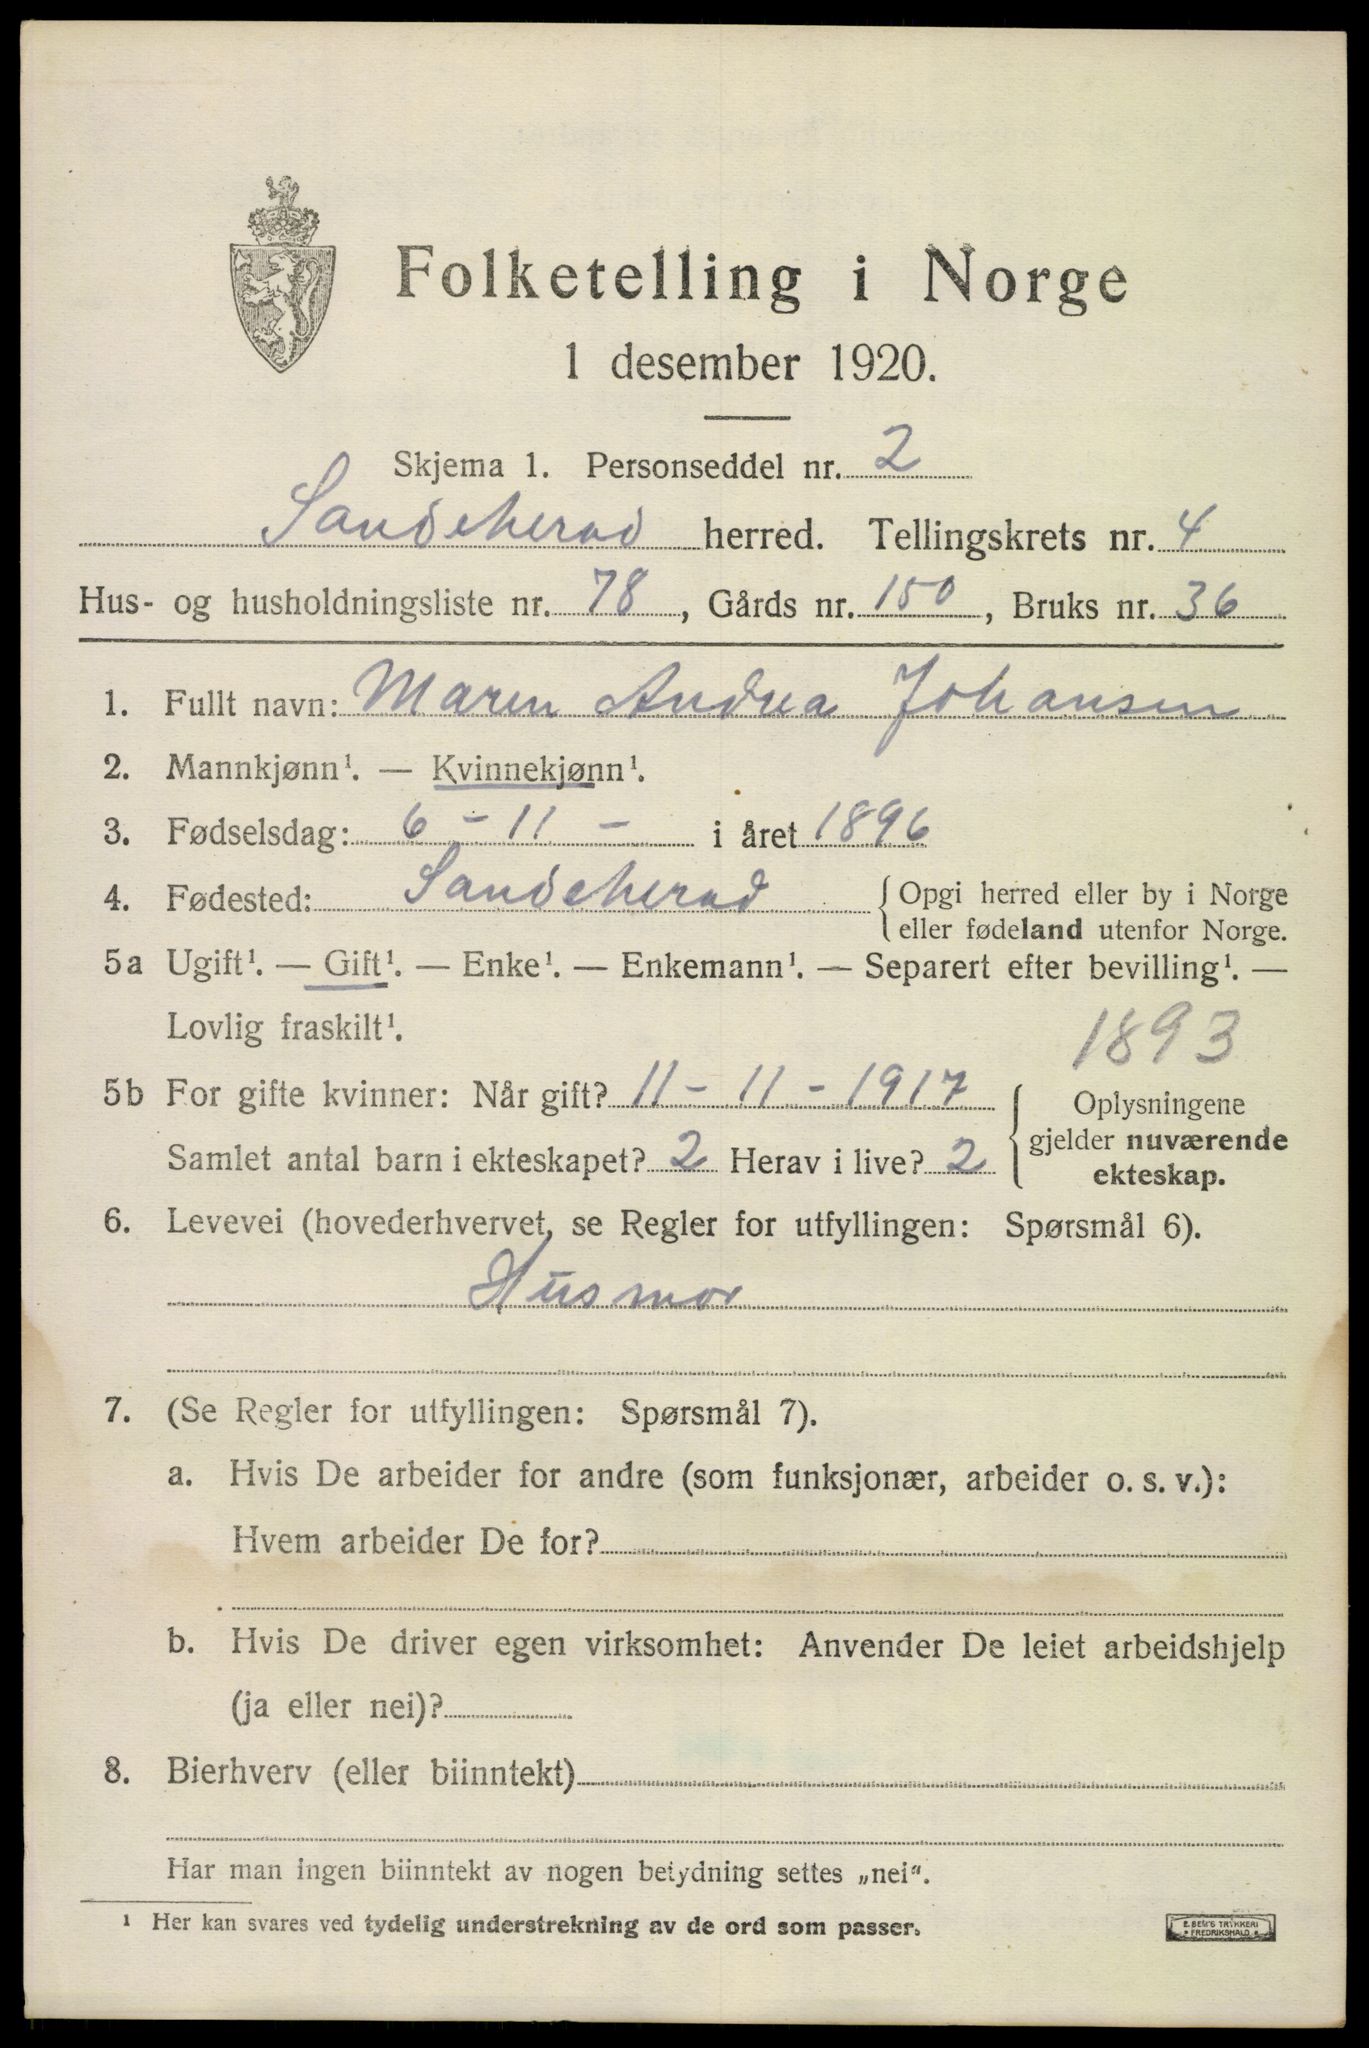 Folketelling i Norge
1 desember 1920.
Skjema 1. Personseddel nr. 2
Sandeherad herred. Tellingskrets nr. 4
Hus- og husholdningsliste nr. 78, Gårds nr. 150, Bruks nr. 36
1. Fullt navn: Maren Andrea Johansen
2. Mannkjønn¹. — Kvinnekjønn¹.
3. Fødselsdag: 6 - 11 - i året 1896
4. Fødested: Sandeherad { Opgi herred eller by i Norge
eller fødeland utenfor Norge.
5a Ugift¹. — Gift¹. — Enke¹. — Enkemann¹. — Separert efter bevilling¹. —
Lovlig fraskilt¹.
1893
5b For gifte kvinner: Når gift? 11 - 11 - 1917
Samlet antal barn i ekteskapet? 2 Herav i live? 2
{ Oplysningene
gjelder nuværende
ekteskap.
6. Levevei (hovederhvervet, se Regler for utfyllingen: Spørsmål 6).
Husmor
7. (Se Regler for utfyllingen: Spørsmål 7).
a. Hvis De arbeider for andre (som funksjonær, arbeider o. s. v.):
Hvem arbeider De for?
b. Hvis De driver egen virksomhet: Anvender De leiet arbeidshjelp
(ja eller nei)?
8. Bierhverv (eller biinntekt)
Har man ingen biinntekt av nogen betydning settes „nei“.
¹ Her kan svares ved tydelig understrekning av de ord som passer.
E. SEM'S TRYKKERI
FREDRIKSHALD